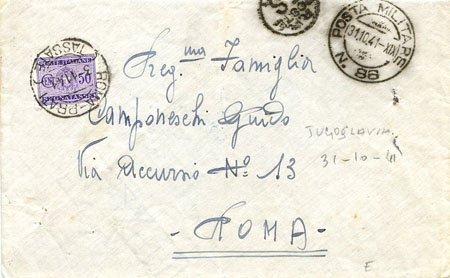 POSTA MILITARE
31.10.41.XX
N. 86
POSTE ITALIANE
50
SEGNATASSE
ROMA
Preg.ma Famiglia
Camponeschi Guido
Via Accursio No 13
- ROMA -
JUGOSLAVIA
31-10-41
E